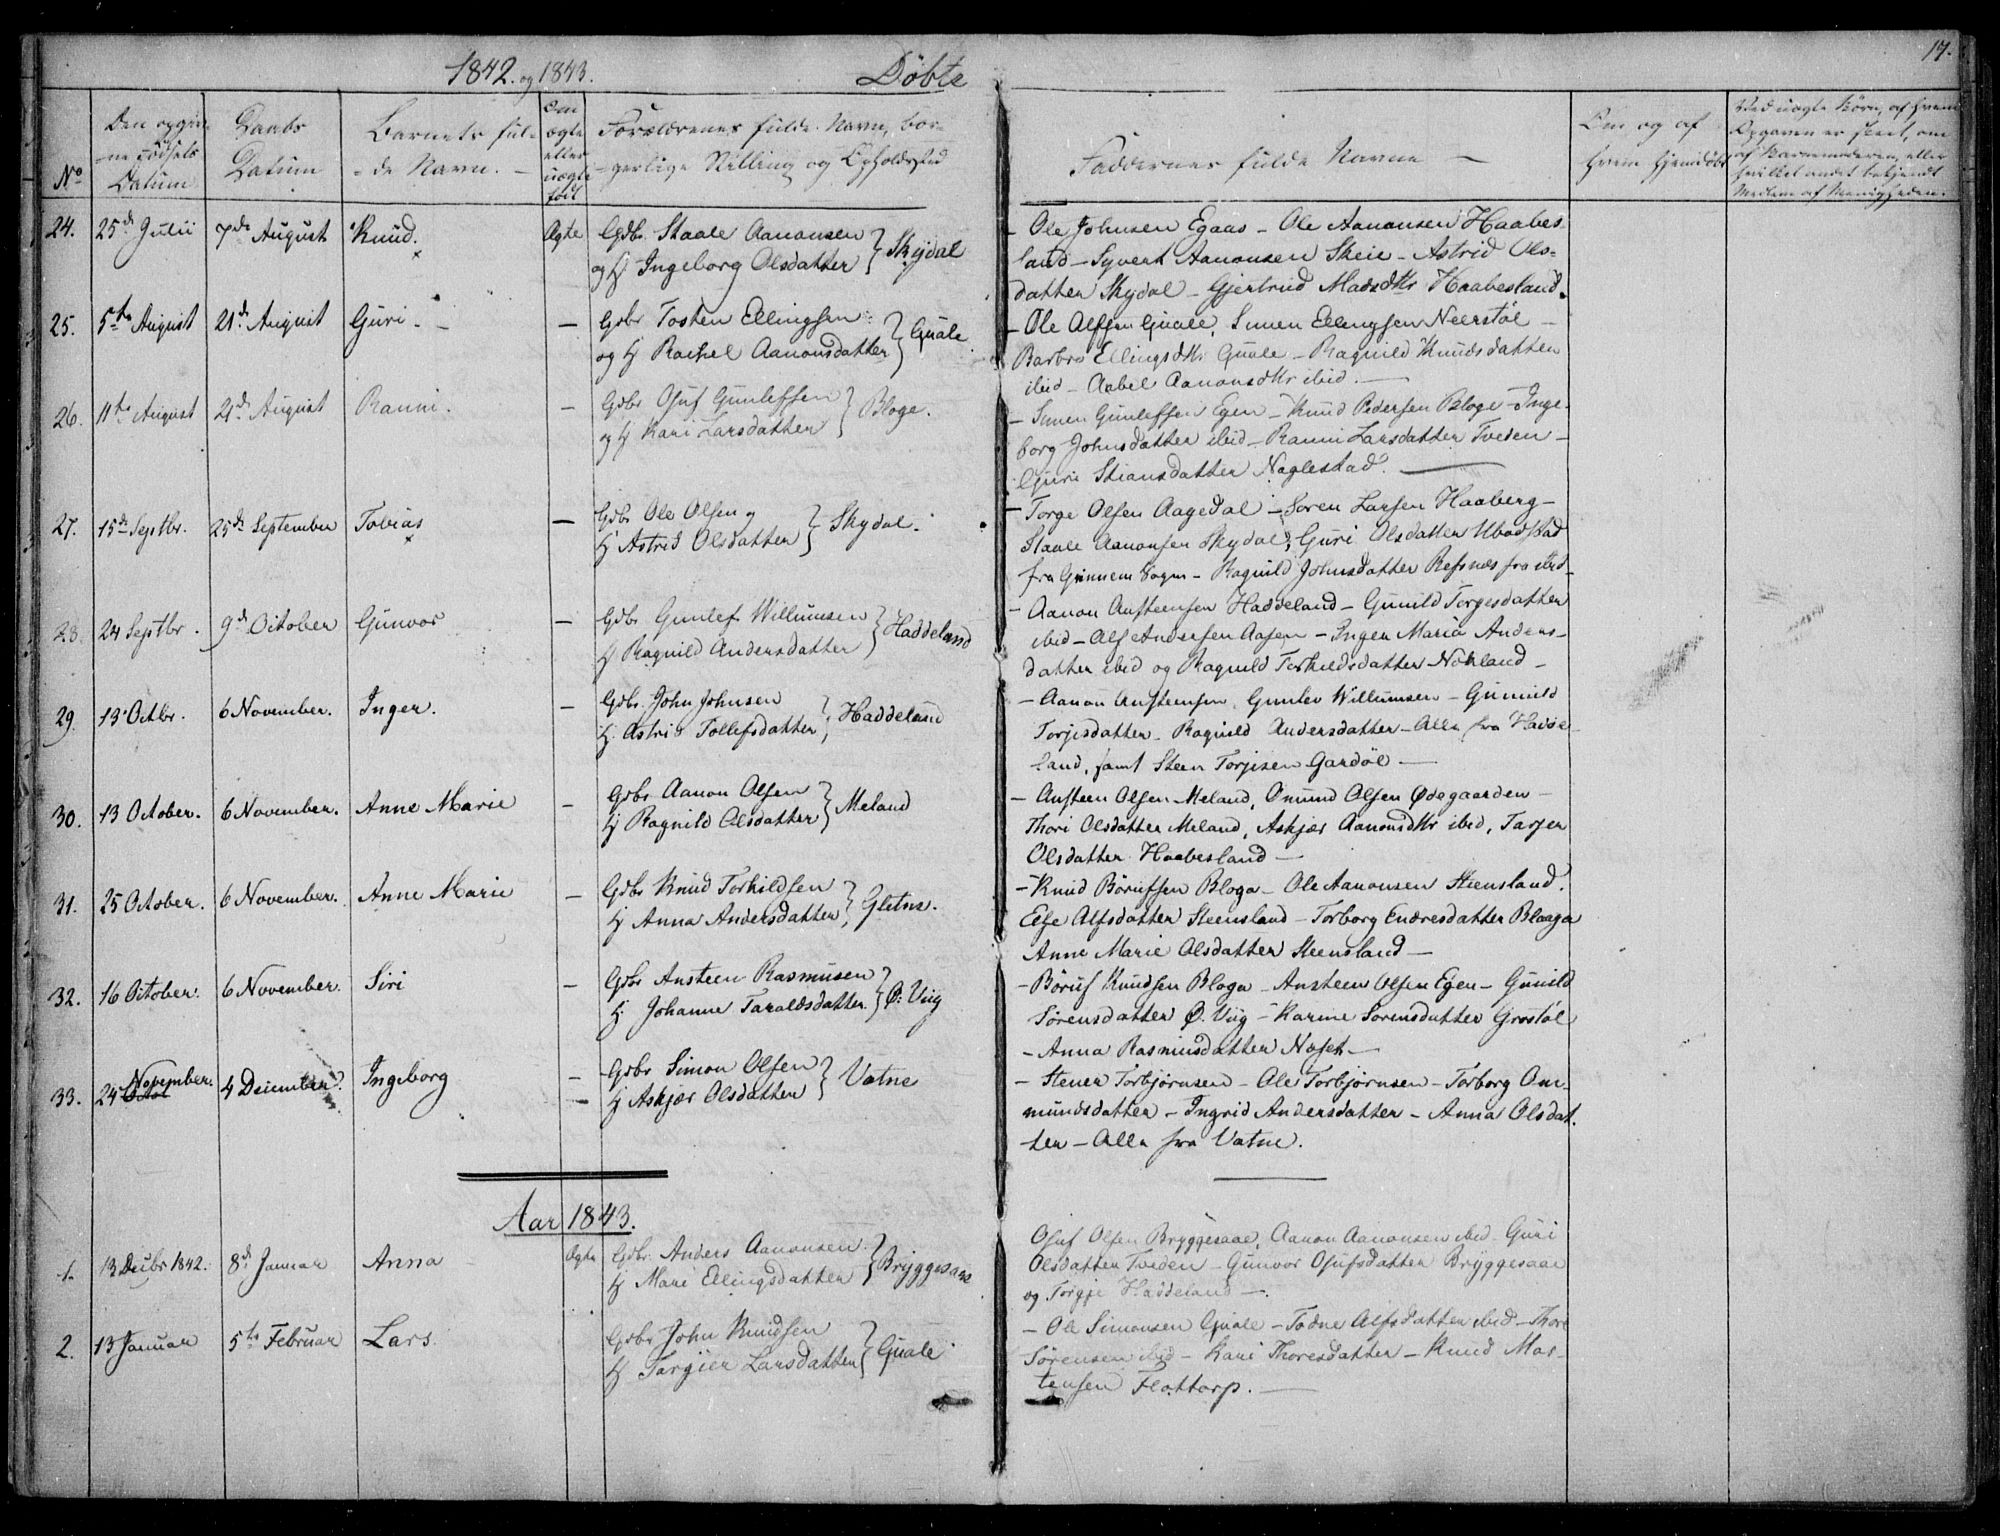 17.
1842. og 1843. Døbte
No
Den opgiv-
-ne Fødsels
Datum
Daabs
Datum
Barnets ful-
-de Navn.
Om
ægte
eller
uægte
født
Forældrenes fulde Navn, bor-
-gerlige Stilling og Opholdssted
Faddernes fulde Navne
Om og af
hvem hjemdøbt
Ved uægte Børn, af hvem
Opgaven er skeet, om
af Barnemoderen, eller
hvilket andet bekjendt
Medlem af Menigheden.
24. 25de Julii 7de August Knud. Ægte Gdbr. Staale Aanonsen
og Hj. Ingeborg Olsdatter } Skydal
- Ole Johnsen Egaas - Ole Aanonsen Haabes-
land - Syvert Aanonsen Skeie - Astrid Ols-
datter Skydal - Gjertrud Madsdtr Haabesland.
25. 5te August 21de August Guri - - Gdbr Tosten Ellingsen
og Hj Rachel Aanonsdatter } Quale
- Ole Alfsen Quale, Simen Ellingsen Neerstøl -
Barbro Ellingsdtr Quale - Ragnild Knudsdatter
ibid - Aabel Aanonsdtr ibid. -
26. 11te August 21de August Ranni. - Gdbr Osuf Gunlefsen
og Hj Kari Larsdatter } Bloge.
- Simen Gunleffsen Egen - Knud Pedersen Bloge - Inge-
borg Johnsdatter ibid - Ranni Larsdatter Tveden -
Guri Stiansdatter Naglestad. -
27. 15de Septbr. 25de September Tobias - Gdbr Ole Olsen og
Hj Astrid Olsdatter } Skydal.
- Torge Olsen Aagedal - Soren Larsen Haaberg -
Staale Aanonsen Skydal, Guri Olsdatter Ubostad
fra Grinnem Sogn - Ragnild Johnsdatter Refsnes fra ibid -
28. 24 Septbr. 9de October Gunvor - Gdbr Gunlef Willumsen
Hj Ragnild Andersdatter } Haddeland
- Aanon Austeensen Haddeland - Gunild Torgesdatter
ibid - Alf Andersen Aasen - Inger Maria Anders-
datter ibid og Ragnild Torkildsdatter Nokland -
29 13 Octbr. 6 November. Inger. - Gdbr. John Johnsen
Hj. Astri Tollefsdatter } Haddeland
- Aanon Austeensen, Gunlev Willumsen - Gunnild
Torjisdatter - Ragnild Andersdatter - Alle fra Hadde-
land, samt Steen Torjisen Gardøl -
30. 13 October. 6 November. Anne Marie - Gdbr Aanon Olsen
Hj Ragnild Olsdatter } Meland
- Austeen Olsen Meland, Omund Olsen Ødegaarden -
Thori Olsdatter Meland, Askjær Aanonsdtr ibid, Tarjer
Olsdatter Haabesland -
31. 25 October. 6 November. Anne Marie - Gdbr Knud Torkildsen
Hj Anna Andersdatter } Gletne.
- Knud Børufsen Bloga - Ole Aanonsen Steensland.
Else Alfsdatter Steensland - Torborg Endresdatter Blaaga
Anne Marie Olsdatter Steensland -
32. 16 October. 6 November. Siri - Gdbr Austeen Rasmusen
Hj. Johanne Taraldsdatter } Ø. Viig
- Børuf Knudsen Bloga - Austeen Olsen Egen - Gunild
Sørensdatter Ø. Viig - Karine Sørensdatter Grostøl
- Anna Rasmusdatter Noset -
33. 24 November. Octol 4 December. Ingeborg - Gdbr Simon Olsen
Hj Askjær Olsdatter } Vatne
- Stener Torbjørnsen - Ole Torbjørnsen - Torborg Om-
mundsdatter - Ingrid Andersdatter - Anna Olsdat-
ter - Alle fra Vatne.
Aar 1843.
1. 13 Decbr 1842. 8de Januar Anna Ægte Gdbr. Anders Aanonsen
Hj Mari Ellingsdatter } Bryggesaae
Osuf Olsen Bryggesaae, Aanon Aanonsen ibid - Guri
Olsdatter Tveden - Gunvor Osufsdatter Bryggesaae
og Torgje Haddeland -
2. 13 Januar 5te Februar Lars. Gdbr John Knudsen
Hj Targier Larsdatter } Quale
- Ole Simonsen Quale - Todne Alfsdatter ibid - Thore
Sørensen ibid - Kari Thoresdatter - Knud Mor-
tensen Flottorp. -